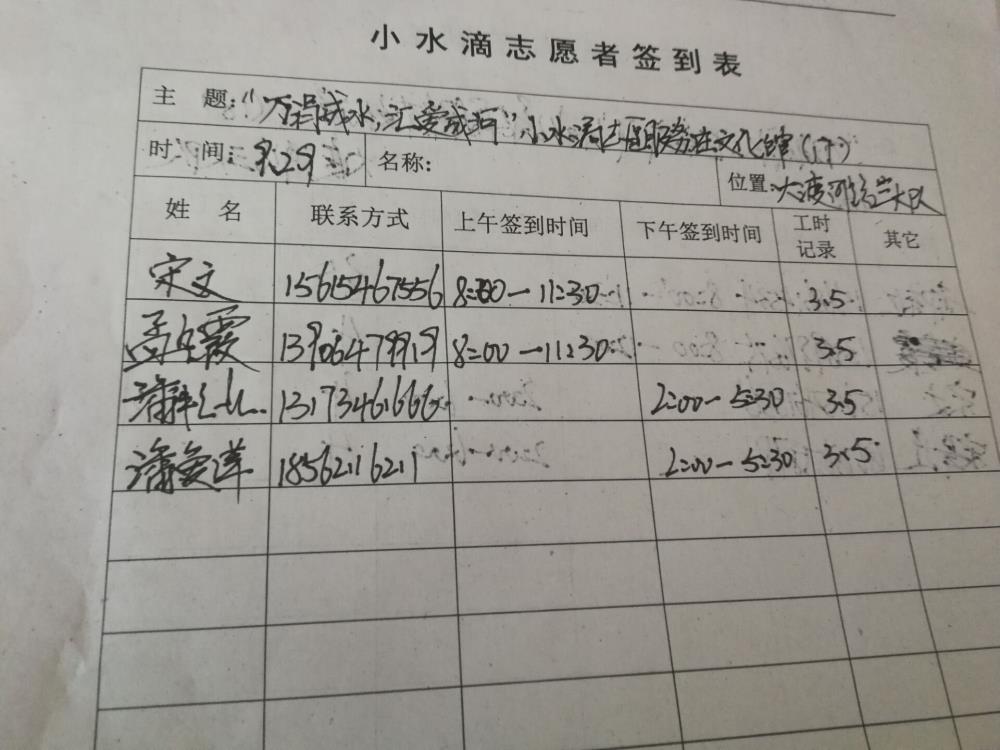 小水滴志愿者签到表
主 题:"万涓成水,汇爱成河"小水滴志愿服务在文化
时 间:9.29 名称: 位置:大渡河路
姓 名 联系方式 上午签到时间 下午签到时间 工时记录 其它
宋文 15615467556 8:00—11:30 3.5
孟 霞 8:00—11:30 3.5
13173461666 2:00—5:30 3.5
潘爱莲 18562116211 2:00—5:30 3.5